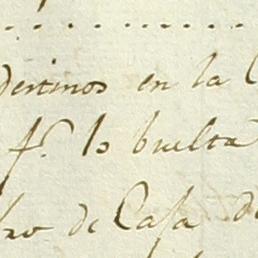 destinos en la C
pr. lo buelta
bro de Casa de